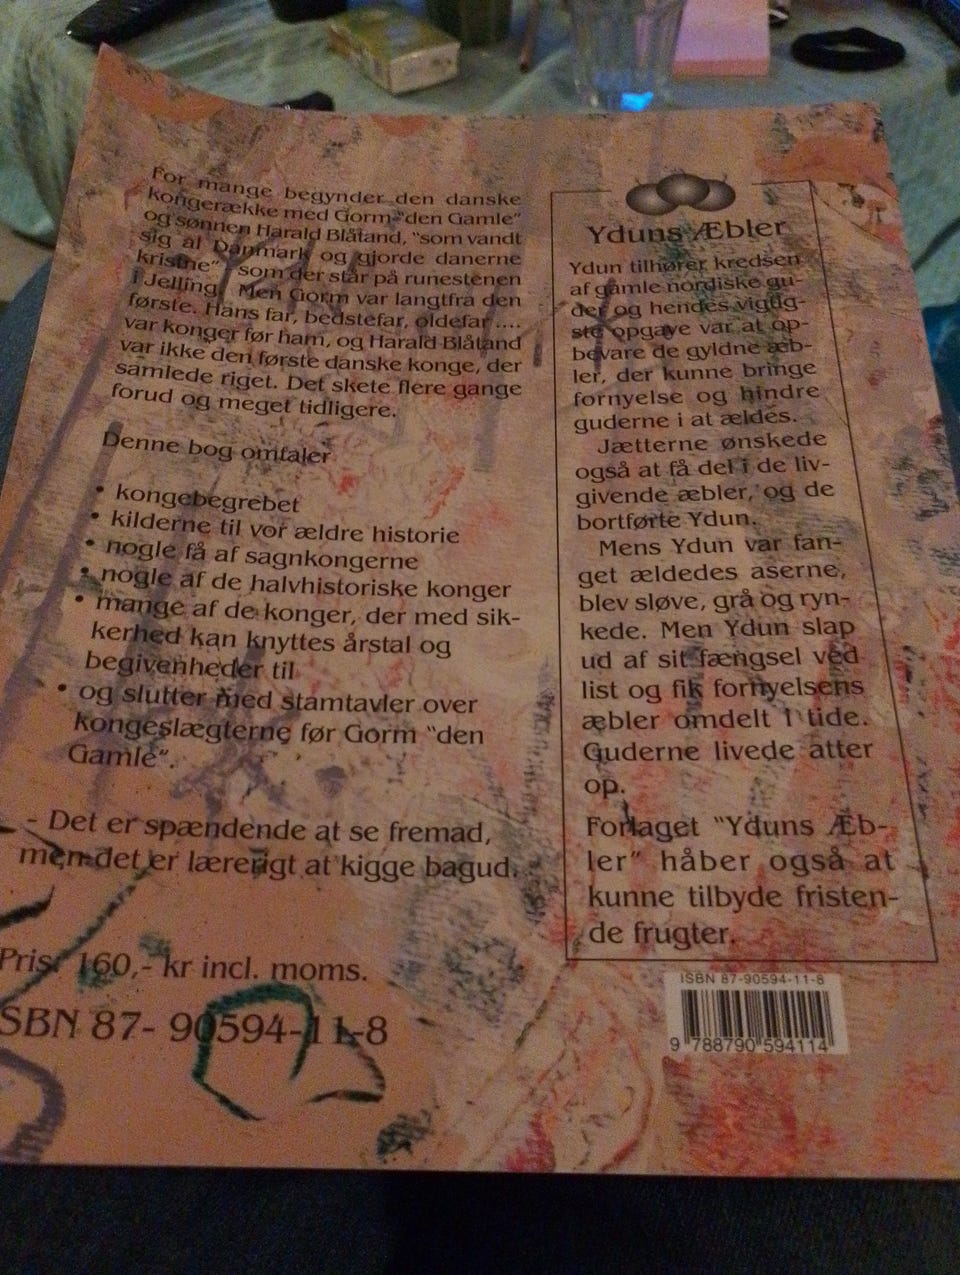 For mange begynder den danske
kongerække med Gorm "den Gamle"
og sønnen Harald Blåtand, "som vandt
sig al Danmark og gjorde danerne
kristne" som der står på runestenen
i Jelling. Men Gorm var langtfra den
første. Hans far, bedstefar, oldefar ....
var konger før ham, og Harald Blåtand
var ikke den første danske konge, der
samlede riget. Det skete flere gange
forud og meget tidligere.
Denne bog omtaler
• kongebegrebet
• kilderne til vor ældre historie
• nogle få af sagnkongerne
• nogle af de halvhistoriske konger
• mange af de konger, der med sik-
kerhed kan knyttes årstal og
begivenheder til
• og slutter med stamtavler over
kongeslægterne før Gorm "den
Gamle".
- Det er spændende at se fremad,
men det er lærerigt at kigge bagud.
Pris: 160,- kr incl. moms.
SBN 87- 90594-11-8
Yduns Æbler
Ydun tilhører kredsen
af gamle nordiske gu-
der og hendes vigtig-
ste opgave var at op-
bevare de gyldne æb-
ler, der kunne bringe
fornyelse og hindre
guderne i at ældes.
Jætterne ønskede
også at få del i de liv-
givende æbler, og de
bortførte Ydun.
Mens Ydun var fan-
get ældedes aserne,
blev sløve, grå og ryn-
kede. Men Ydun slap
ud af sit fængsel ved
list og fik fornyelsens
æbler omdelt i tide.
Guderne livede atter
op.
Forlaget "Yduns Æb-
ler" håber også at
kunne tilbyde fristen-
de frugter.
ISBN 87-90594-11-8
9 788790 594114